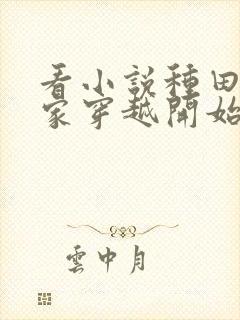 看小說種田
家穿越開始
雲中月